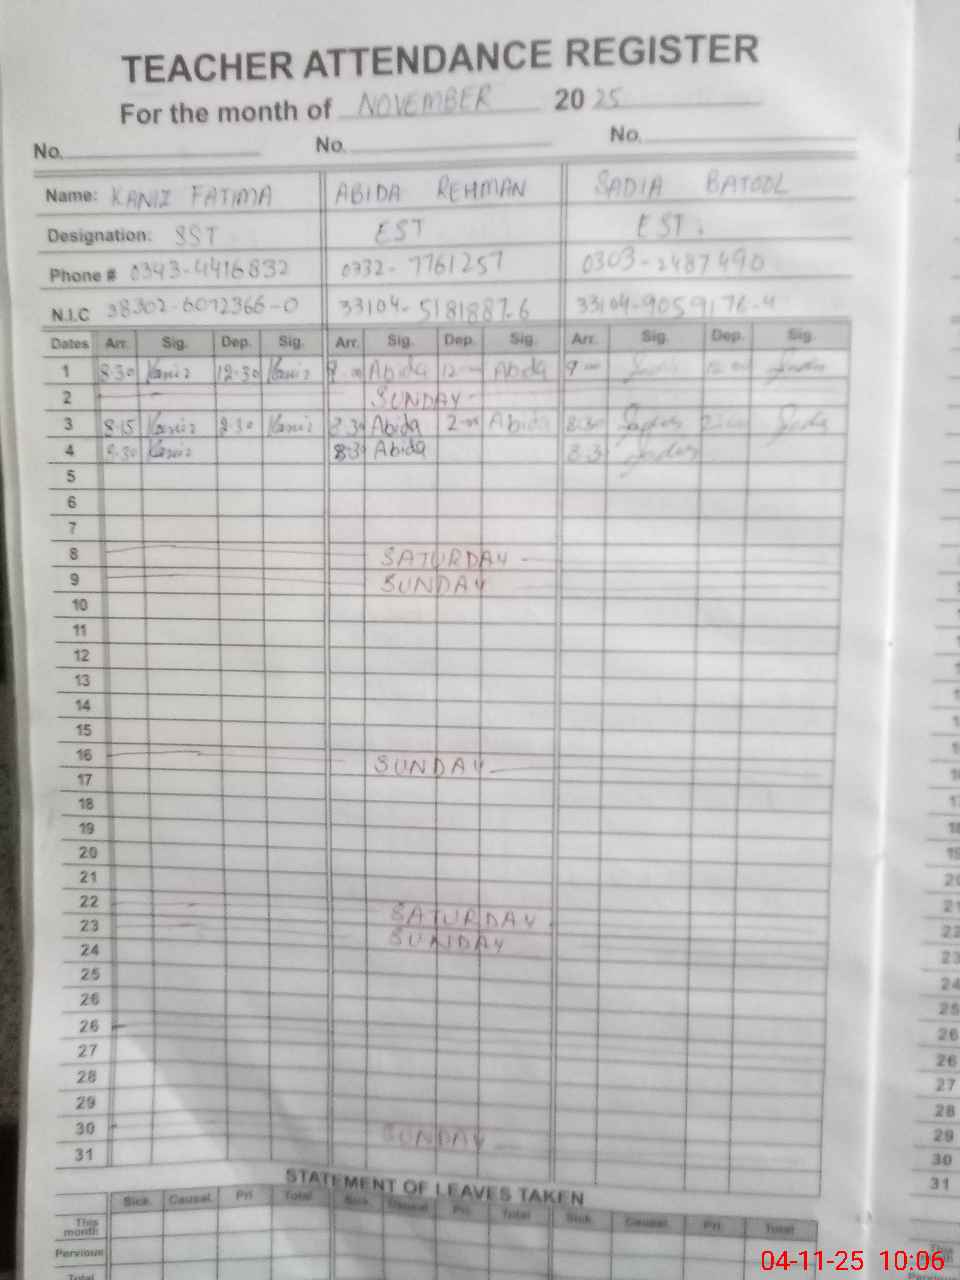 TEACHER ATTENDANCE REGISTER
For the month of NOVEMBER 20 25
No. No. No.
Name: KANIZ FATIMA ABIDA REHMAN SADIA BATOOL
Designation: SST EST EST.
Phone # 0343-4416832 0332-7761257 0303-2487490
N.I.C 38302-6012366-0 33104-5181887-6 33104-9059176-4
Dates Arr. Sig. Dep. Sig. Arr. Sig. Dep. Sig. Arr. Sig. Dep. Sig.
1 8:30 Kaniz 12:30 Kaniz Abida 12 Abida 9
2 SUNDAY
3 8:15 Kaniz 2:30 Kaniz 8:30 Abida 2:00 Abida 8:30
4 8:30 Kaniz 8:3 Abida 8:3
5
6
7
8 SATURDAY
9 SUNDAY
10
11
12
13
14
15
16 SUNDAY
17
18
19
20
21
22 SATURDAY
23 SUNDAY
24
25
26
26
27
28
29
30 SUNDAY
31
STATEMENT OF LEAVES TAKEN
Sick. Causal. Pri Total Sick. Causal. Pri. Total Sick. Causal. Pri. Total
This month
Pervious
Total
04-11-25 10:06